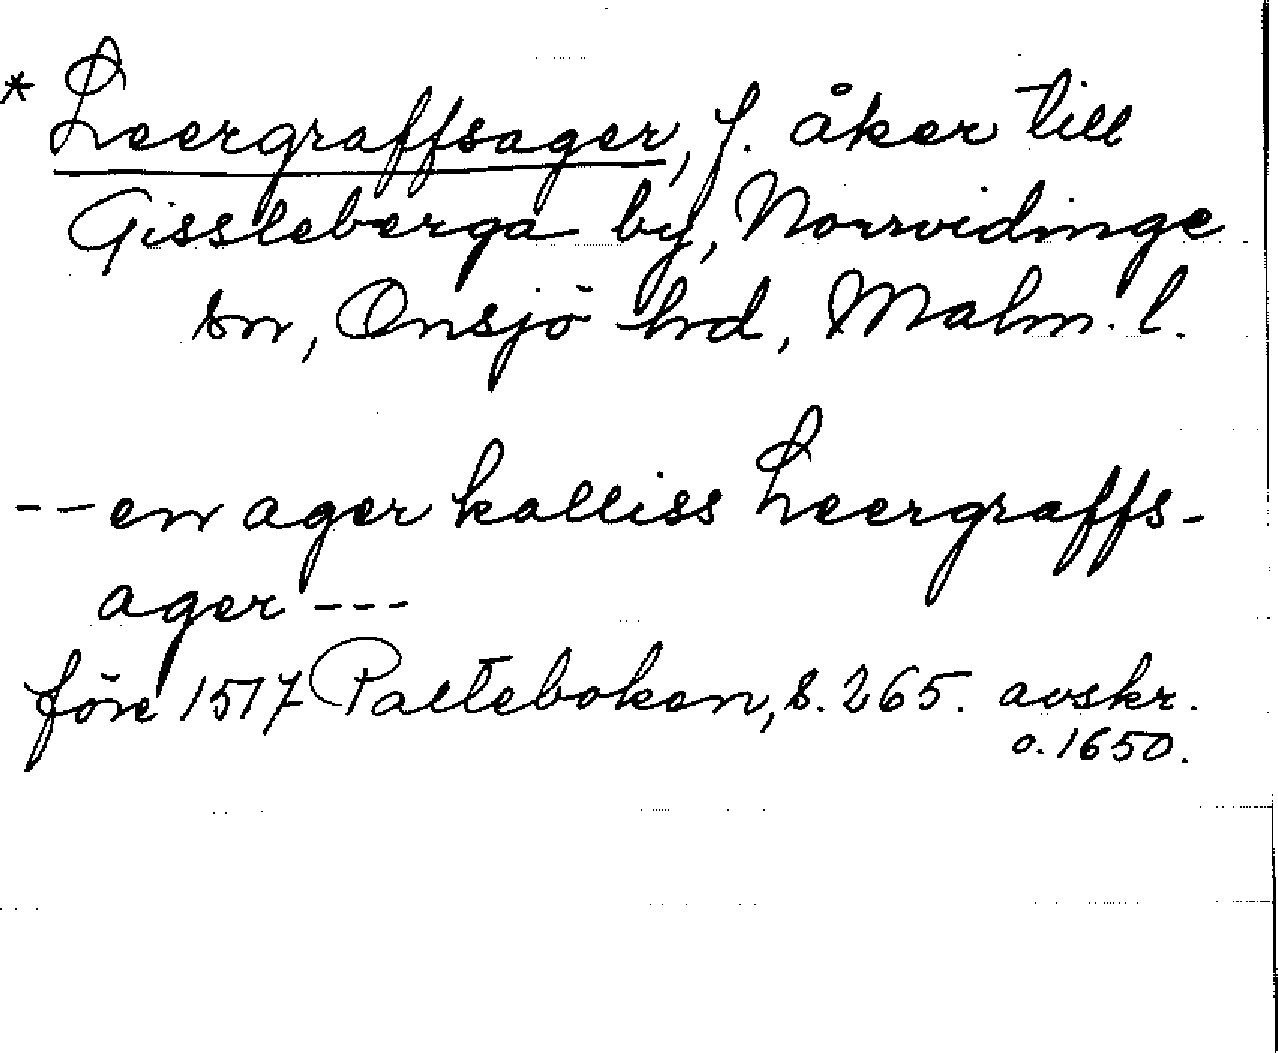 * Leergraffsager, f. åker till
Gissleberga by, Norrvidinge
sn, Onsjö hd, Malm. l.
-- en ager kalliss Leergraffs-
ager ---
före 1517 Palteboken, s. 265. avskr.
o. 1650.